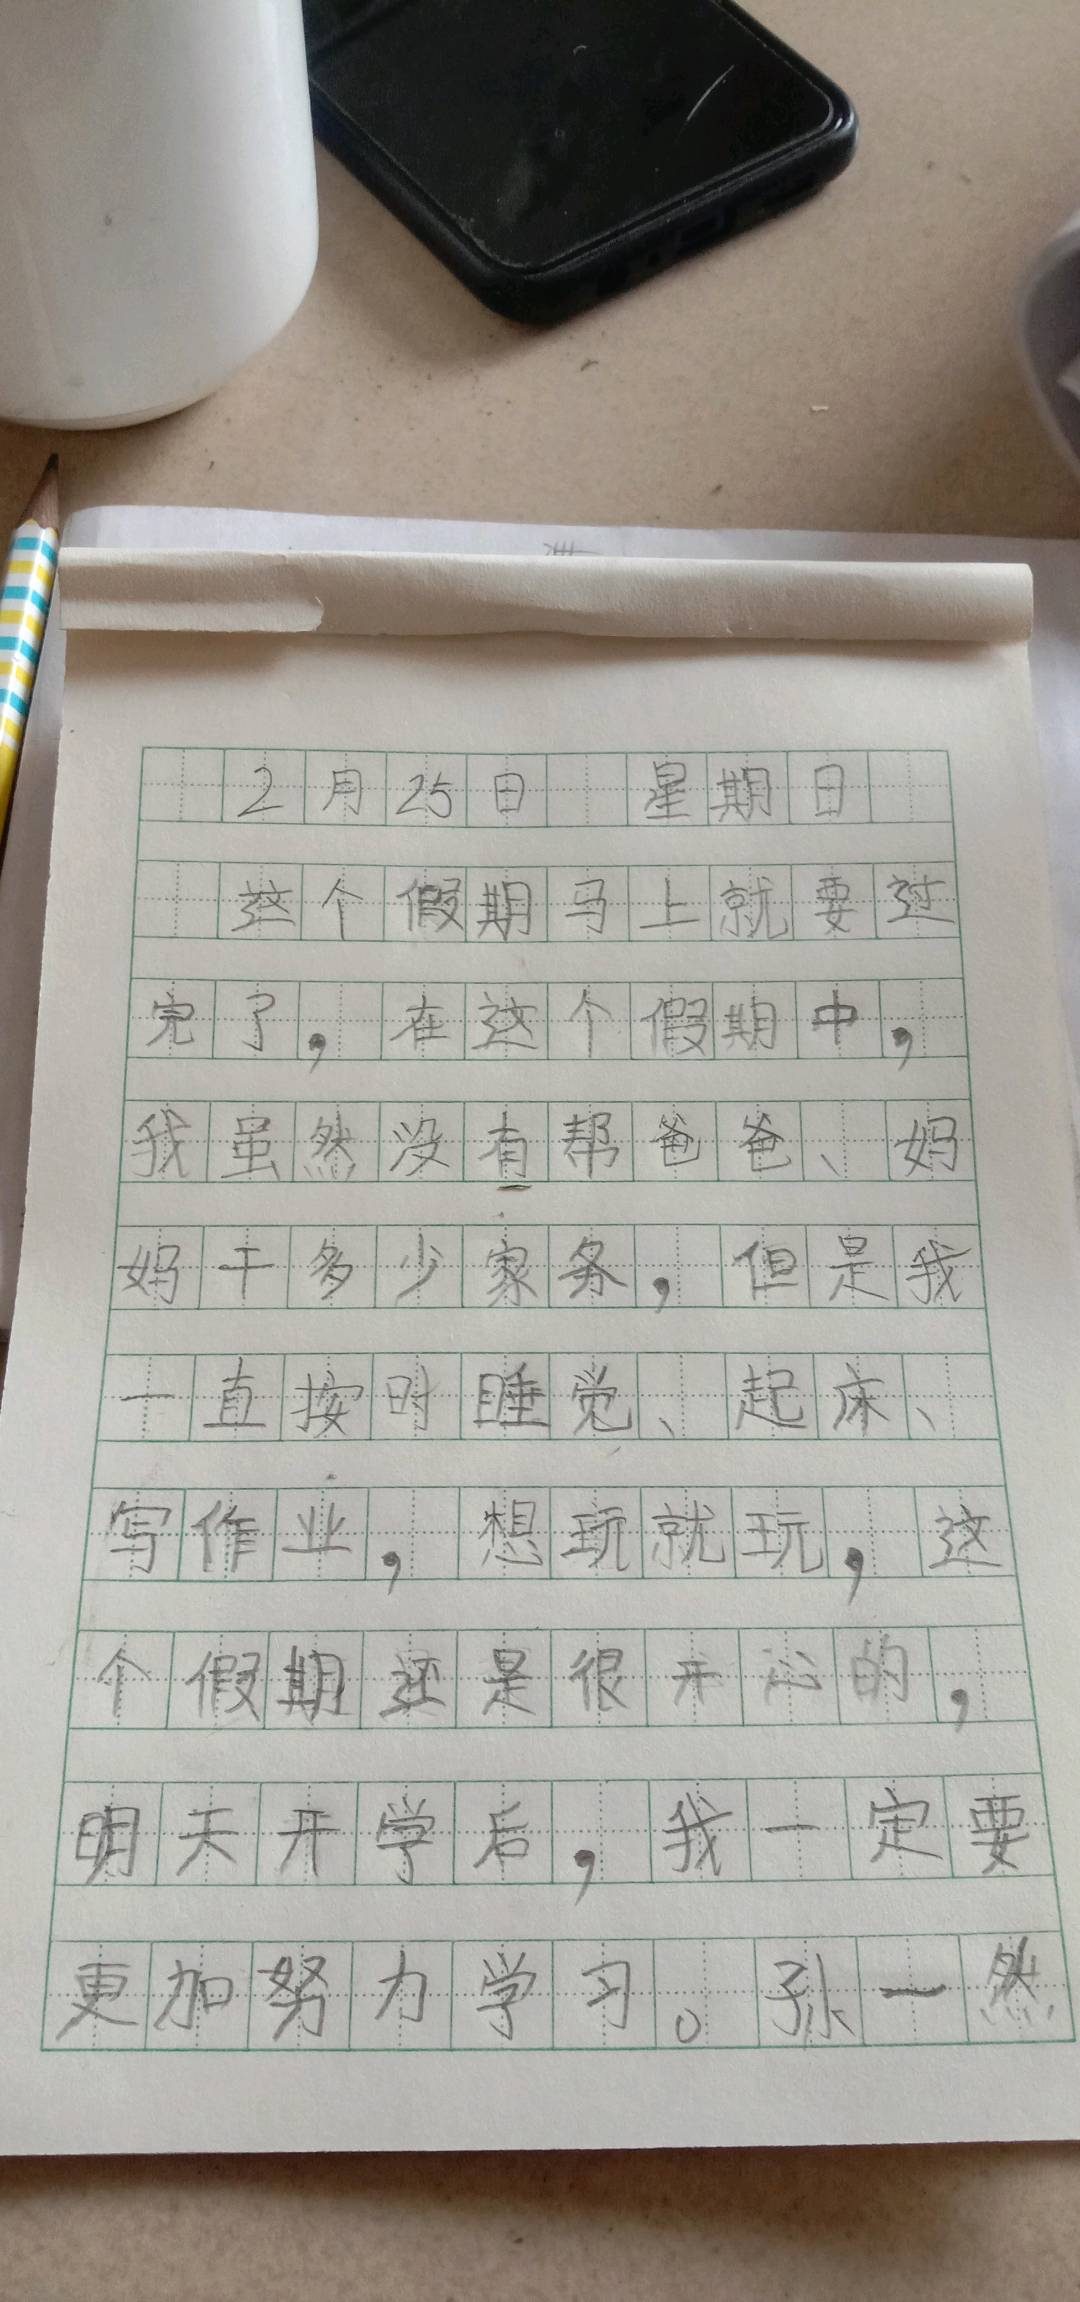 2月25日 星期日
这个假期马上就要过
完了，在这个假期中，
我虽然没有帮爸爸、妈
妈干多少家务，但是我
一直按时睡觉、起床、
写作业，想玩就玩，这
个假期还是很开心的，
明天开学后，我一定要
更加努力学习。孙一然